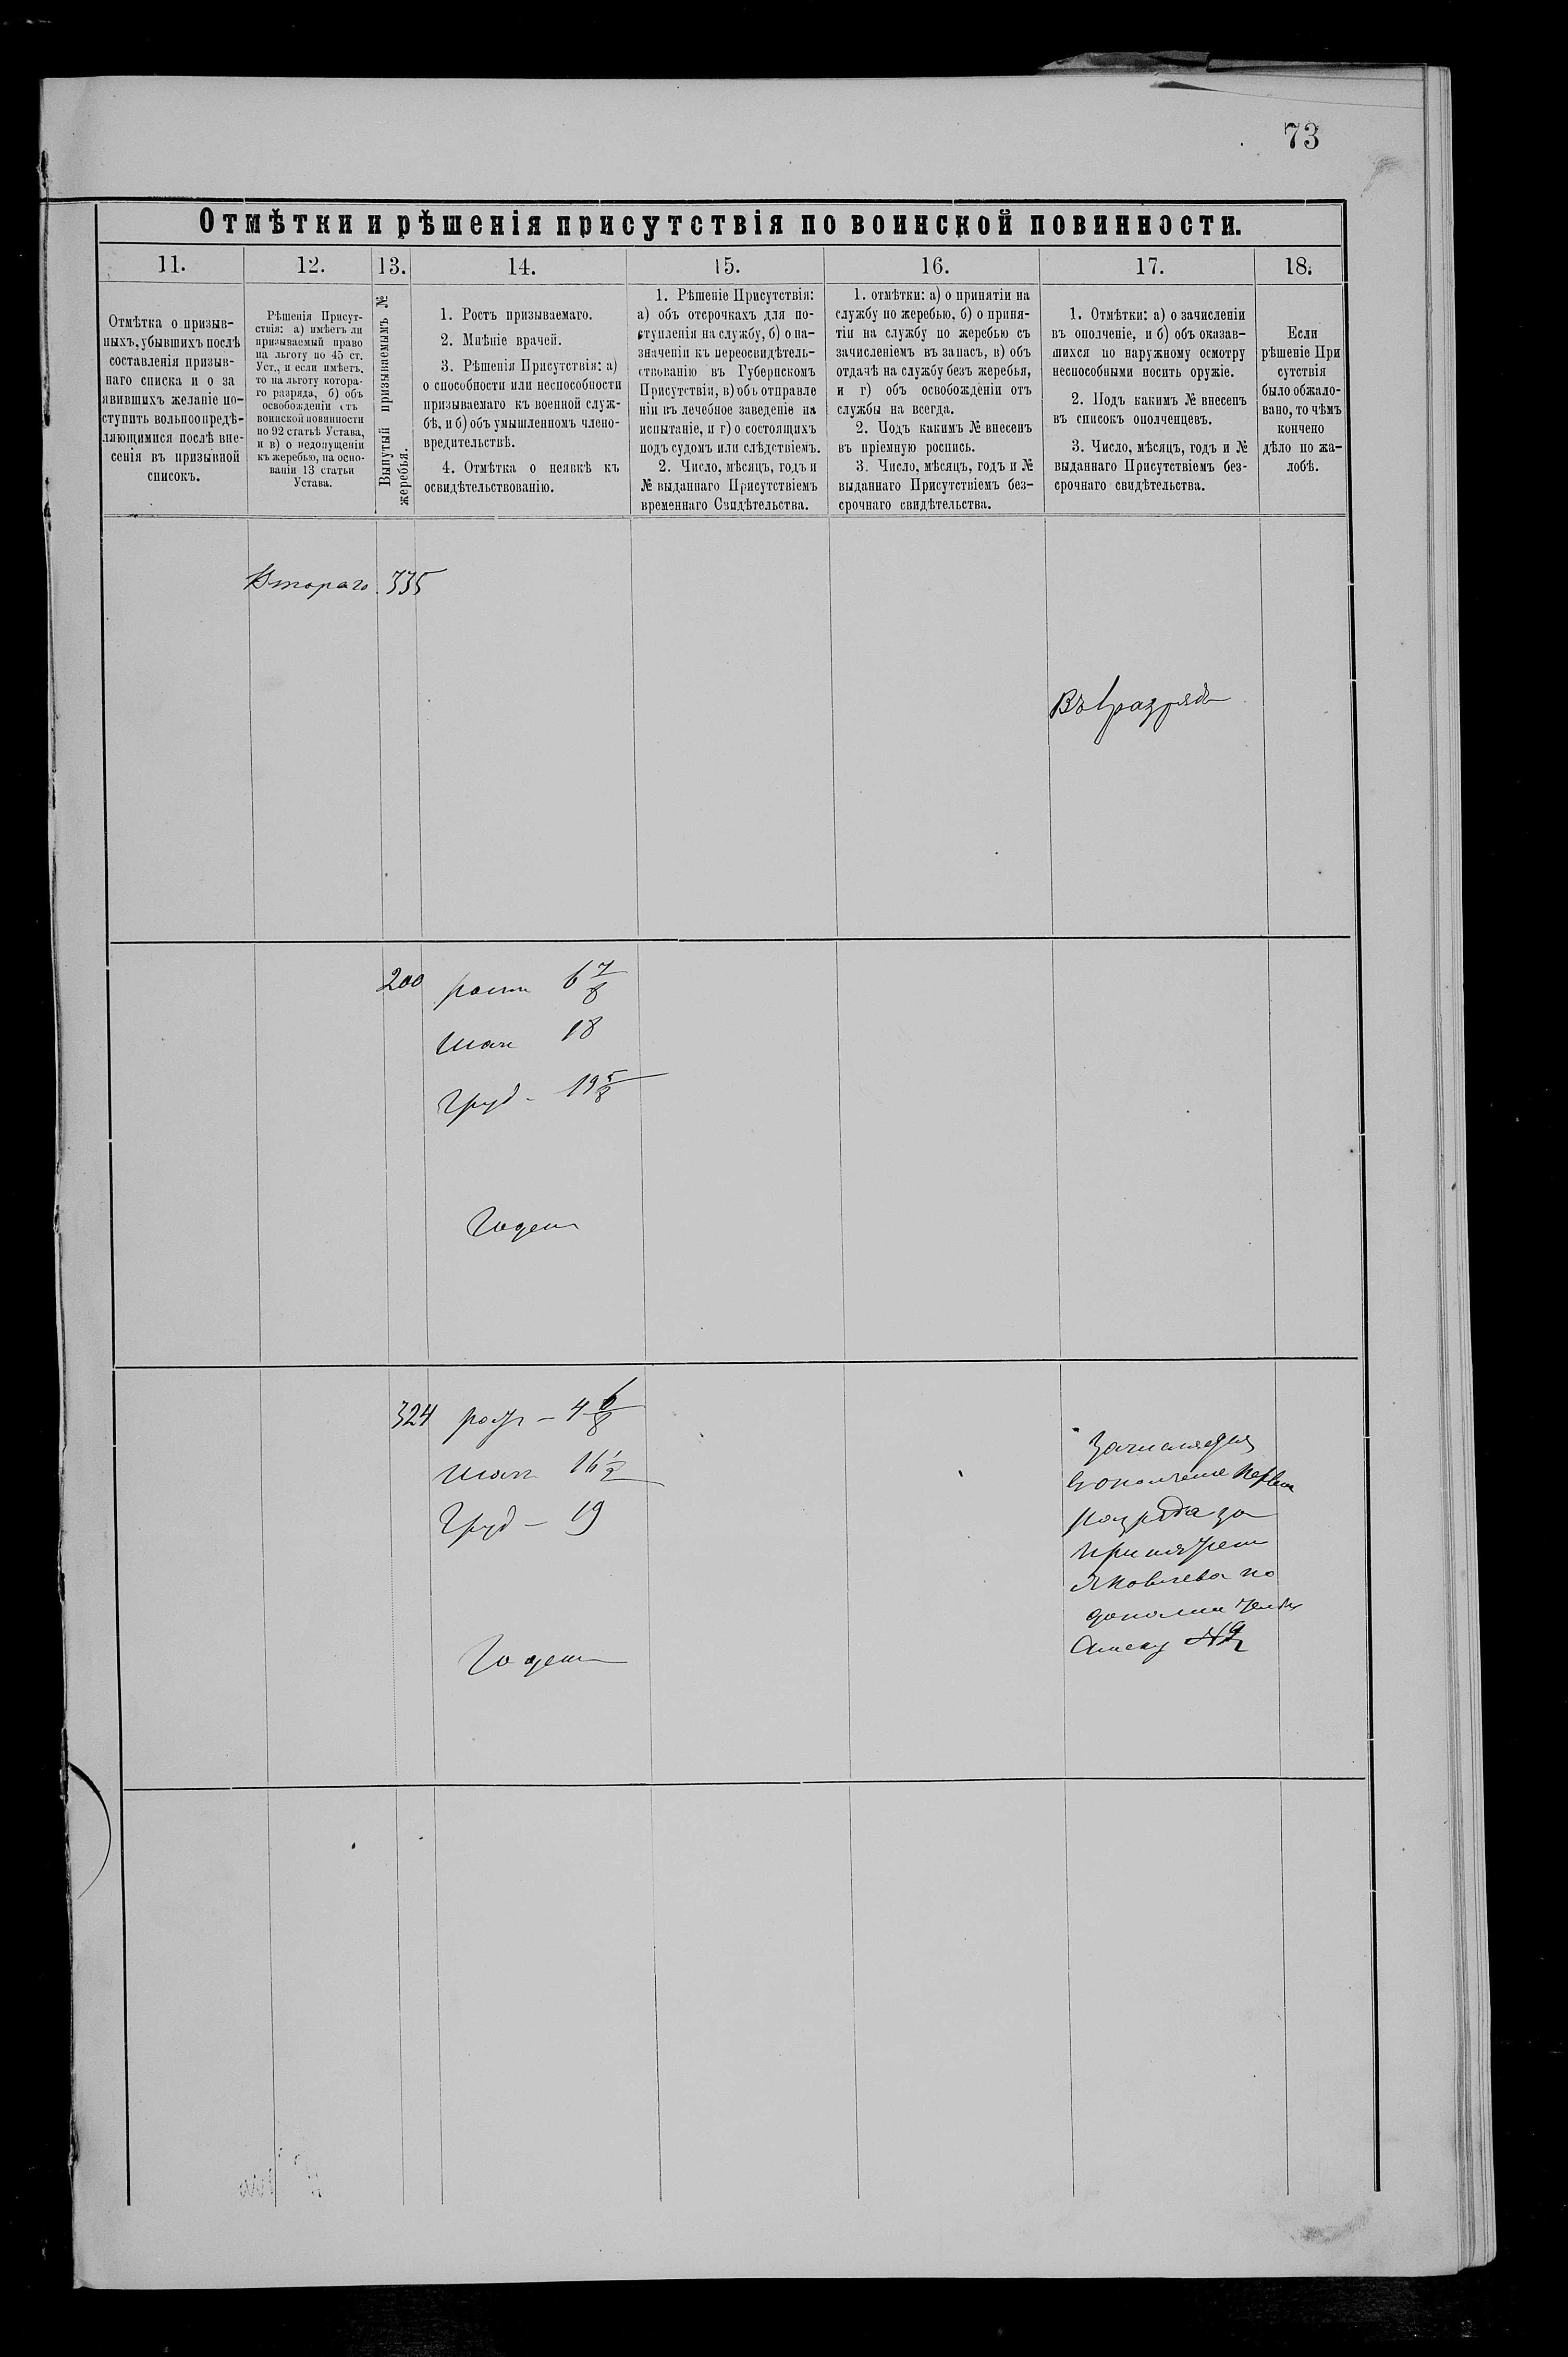 73
Отмѣтки и рѣшенія присутствія по воинской повинности.
11.
12.
13.
14.
15.
16.
17.
18.
Отмѣтка о призыв-
ныхъ, убывшихъ послѣ
составленія призыв-
наго списка и о за
явившихъ желаніе по-
ступить вольноопредѣ-
ляющимися послѣ вне-
сенія въ призывной
списокъ.
Рѣшенія Присут-
ствія: а) имѣетъ ли
призываемый право
на льготу по 45 ст.
Уст., и если имѣетъ,
то на льготу котора-
го разряда, б) объ
освобожденіи отъ
воинской повинности
по 92 статьѣ Устава,
и в) о недопущеніи
къ жеребью, на осно-
ваніи 13 статьи
Устава.
Вынутый призываемымъ №
жеребья.
1. Ростъ призываемаго.
2. Мнѣніе врачей.
3. Рѣшенія Присутствія: а)
о способности или неспособности
призываемаго къ военной служ-
бѣ, и б) объ умышленномъ члено-
вредительствѣ.
4. Отмѣтка о неявкѣ къ
освидѣтельствованію.
1. Рѣшеніе Присутствія:
а) объ отсрочкахъ для по-
ступленія на службу, б) о на-
значеніи къ переосвидѣтель-
ствованію въ Губернскомъ
Присутствіи, в) объ отправле
ніи въ лечебное заведеніе на
испытаніе, и г) о состоящихъ
подъ судомъ или слѣдствіемъ.
2. Число, мѣсяцъ, годъ и
№ выданнаго Присутствіемъ
временнаго Свидѣтельства.
1. отмѣтки: а) о принятіи на
службу по жеребью, б) о приня-
тіи на службу по жеребью съ
зачисленіемъ въ запасъ, в) объ
отдачѣ на службу безъ жеребья,
и г) объ освобожденіи отъ
службы на всегда.
2. Подъ какимъ № внесенъ
въ пріемную роспись.
3. Число, мѣсяцъ, годъ и №
выданнаго Присутствіемъ без-
срочнаго свидѣтельства.
1. Отмѣтки: а) о зачисленіи
въ ополченіе, и б) объ оказав-
шихся по наружному осмотру
неспособными носить оружіе.
2. Подъ какимъ № внесенъ
въ списокъ ополченцевъ.
3. Число, мѣсяцъ, годъ и №
выданнаго Присутствіемъ без-
срочнаго свидѣтельства.
Если
рѣшеніе При
сутствія
было обжало-
вано, то чѣмъ
кончено
дѣло по жа-
лобѣ.
Втораго 335
Въ 1 разрядъ
200 ростъ 6 7/8
18
Груд - 19 5/8
Годенъ
324 ростъ - 4 6/8
16 1/2
Груд - 19
Годенъ
Зачисляется
въ ополченіе перваго
разряда за
принятіемъ
Яковлева по
дополнительн
списку №